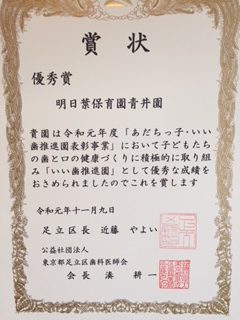 賞状
優秀賞
明日葉保育園青井園
貴園は令和元年度「あだちっ子・いい
歯推進園表彰事業」において子どもたち
の歯と口の健康づくりに積極的に取り組
み「いい歯推進園」として優秀な成績を
おさめられましたのでこれを賞します
令和元年十一月九日
足立区長 近藤 やよい
公益社団法人
東京都足立区歯科医師会
会長 湊 耕一